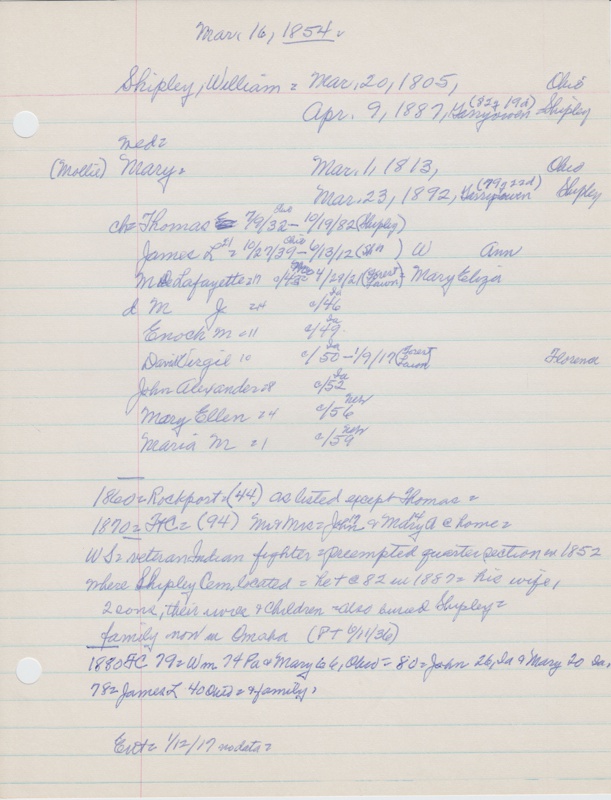 Mar. 16, 1854.
Shipley, William = Mar. 20, 1805, Ohio
Apr. 9, 1887, Harryowen (82y 19d) Shipley
wed =
(Mollie) Mary = Mar. 1, 1813, Ohio
Mar. 23, 1892, (79y 22d) Shipley
ch = Thomas 7/9/38 - 10/19/82 (Shipley)
James L = 10/27/39 Ohio - 6/13/12 W Ann
M Lafayette = 17 c/43 4/29/21 (Forest Lawn) = Mary Eliza
d M J = 14 c/46 Ia
Enoch M = 11 c/49 Ia
Virgil 10 c/50 Ia - 1/9/17 (Forest Lawn) Florence
John Alexander = 8 c/52 Ia
Mary Ellen = 4 c/56 Neb
Maria M = 1 c/59 Neb
1860 = Rockport = (44) as listed except Thomas =
1870 = FC = (94) Mr & Mrs = John 17 & Mary 14 @ home =
WS = veteran Indian fighter = preempted quarter section in 1852
where Shipley Cem located = he + @ 82 in 1887 = his wife,
2 sons, their wives & children also buried Shipley =
family now in Omaha (P + 6/11/36)
1880 FC 79 = Wm 74 Pa & Mary 66, Ohio = 80 = John 26, Ia & Mary 20 Ia,
78 = James L 40 Ohio = & family,
1/12/17 no data =